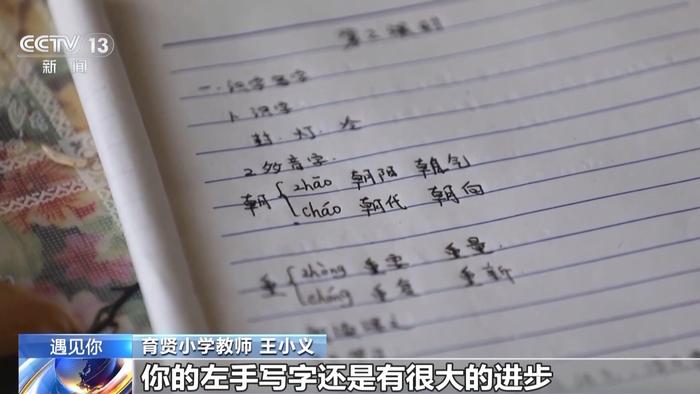 CCTV 13
新闻
一.识字写字
1.识字
2.多音字.
朝 zhāo 朝阳 朝气
cháo 朝代 朝向
重 zhòng 重要 重量
chóng 重复 重新
遇见你 育贤小学教师 王小义
你的左手写字还是有很大的进步